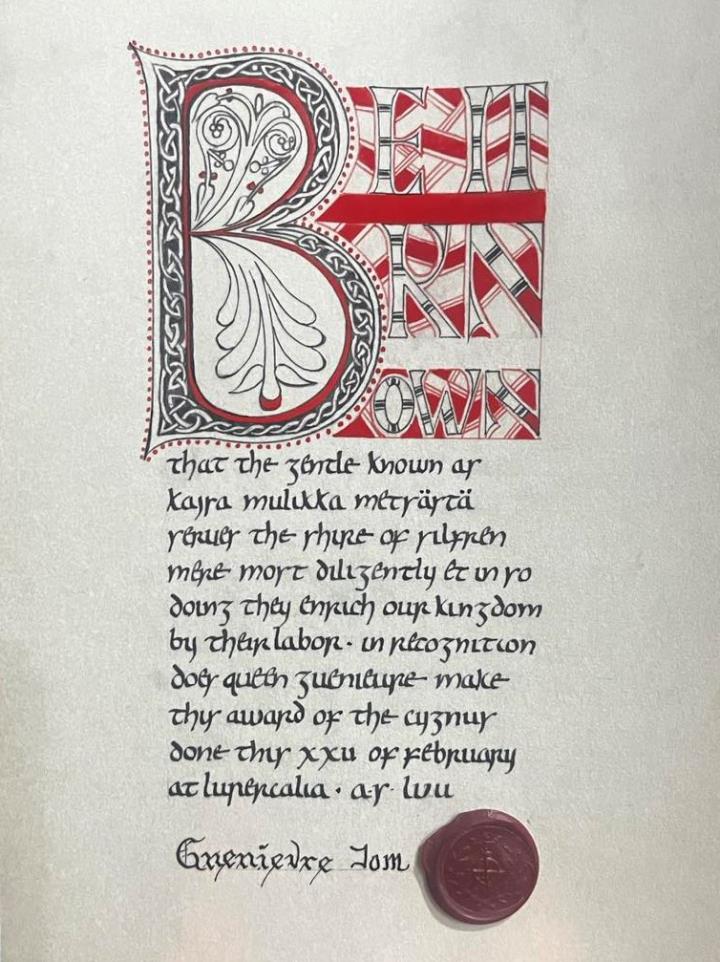 BE IT
KN
OWN
that the gentle known as
kajsa mulikka metsästä
serves the shire of silfren
mere most diligently et in so
doing they enrich our kingdom
by their labor · in recognition
does queen guenievre make
this award of the cygnus
done this xxii of february
at lupercalia · a·s· lvii
Guenievre